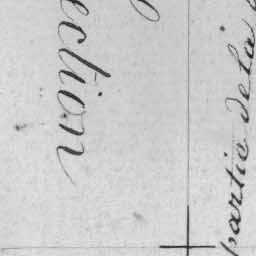 ection
partie de la